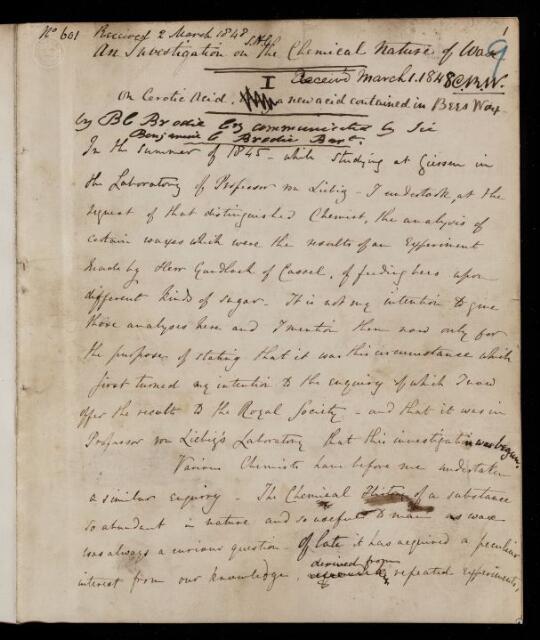 No 601 Received 2 March 1848 S.H.C. 1
An Investigation on the Chemical Nature of Wax 9
I
Received March 1. 1848 C.R.W.
On Cerotic Acid, a new acid contained in Bees Wax
by BC Brodie Esq communicated by Sir
Benjamin C Brodie Bart.
In the summer of 1845 - while studying at Giessen in
the Laboratory of Professor von Liebig - I undertook, at the
request of that distinguished Chemist, the analysis of
certain waxes which were the results of an Experiment
made by Herr Gundlach of Cassel, of feeding bees upon
different kinds of sugar - It is not my intention to give
those analyses here and I mention them now only for
the purpose of stating that it was this circumstance which
first turned my intention to the enquiry of which I now
offer the results to the Royal Society - and that it was in
Professor von Liebig's Laboratory that this investigation was begun.
Various Chemists have before me undertaken
a similar enquiry - The Chemical History of a substance
so abundant in nature and so useful to man as wax
was always a curious question - Of late it has acquired a peculiar
interest from our knowledge, derived from repeated experiments,